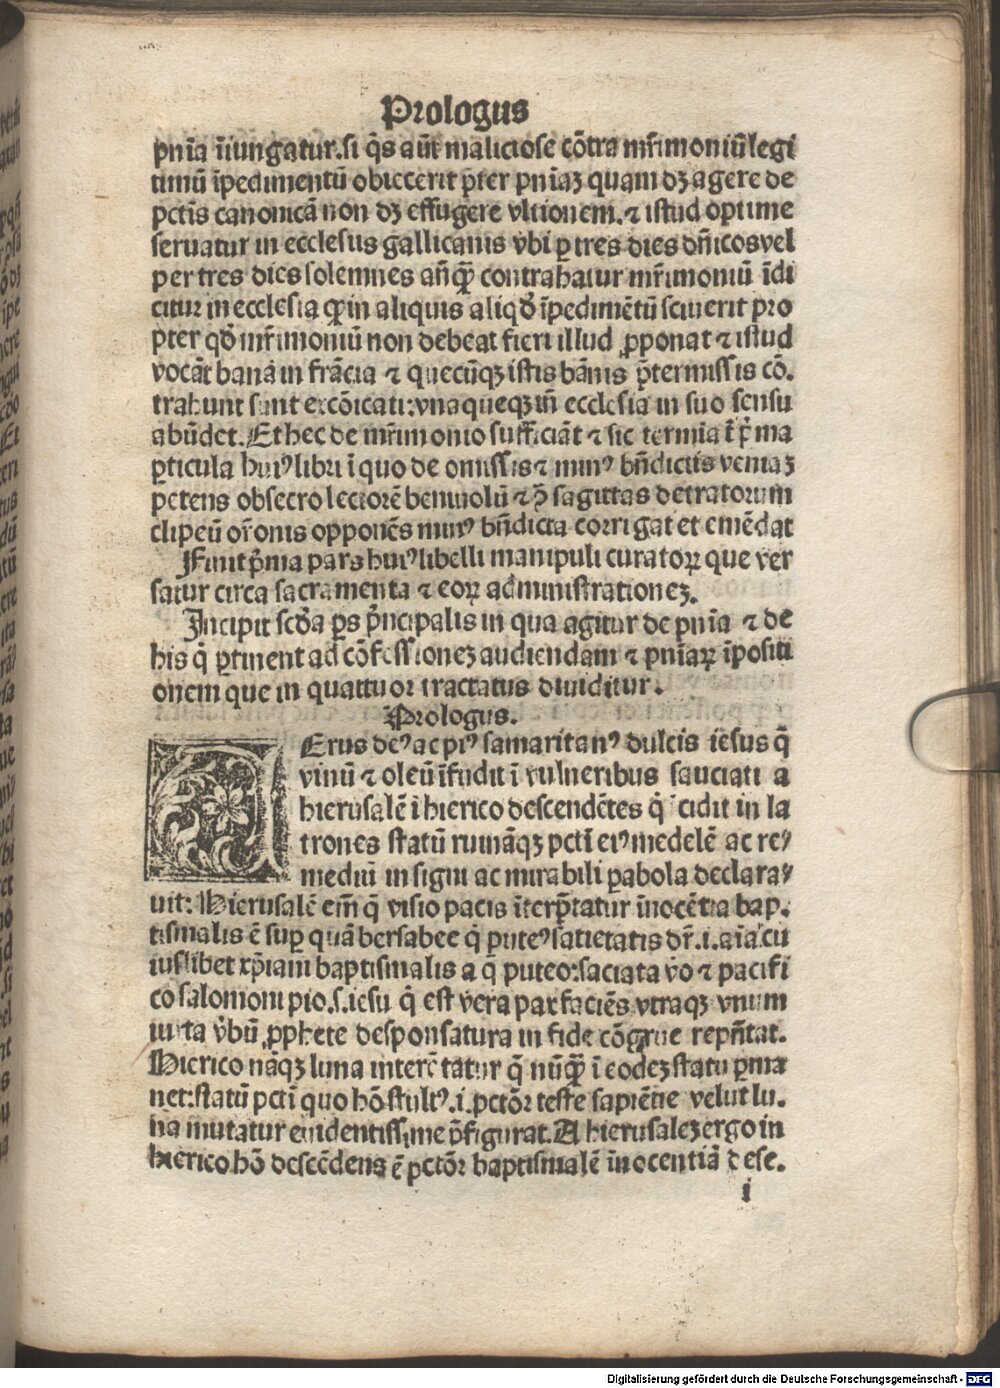 Prologus
pnīa īiungatur.si q̄s aūt maliciose cōtra mr̄imoniū legi
timū īpedimentū obiecerit p̄ter pniaꝫ quam dꝫ agere de
pctīs canonicā non dꝫ effugere vltionem.⁊ istud optime
seruatur in ecclesiis gallicanis vbi ꝑ tres dies dn̄icos vel
per tres dies solemnes an̄qꝫ contrahatur mr̄imoniū īdi
citur in ecclesia qꝫ in aliquis aliqd̄ īpedimētū sciuerit pro
pter qd̄ mr̄imoniū non debeat fieri illud ꝓponat ⁊ istud
vocāt bana in frācia ⁊ quecūqꝫ istis bānis p̄termissis cō.
trahunt sunt excōicati:vnaqueqꝫ tn̄ ecclesia in suo sensu
abūdet. Et hec de mr̄imonio sufficiāt ⁊ sic termīa t̄ pr̄ma
ꝑticula huiꝰ libri ī quo de omissis ⁊ minꝰ bn̄dictis veniaꝫ
petens obsecro lectorē beniuolū ⁊ ꝯ̄ sagittas detratorum
clipeū or̄onis opponēs minꝰ bn̄dicta corrigat et emēdat
Finit p̄ma pars huiꝰ libelli manipuli curatoꝝ que ver
satur circa sacramenta ⁊ eoꝝ administrationeꝫ.
Incipit scd̄a ꝑs p̄ncipalis in qua agitur de pnīa ⁊ de
his q̄ ꝑtinent ad cōfessioneꝫ audiendam ⁊ pniaꝝ īpositi
onem que in quattuor tractatus diuiditur.
Prologus.
VErus deꝰ ac piꝰ samaritanꝰ dulcis iesus q̄
vinū ⁊ oleū īfudit ī vulneribus sauciati a
hierusalē ī hierico descendētes q̄ īcidit in la
trones statū ruināqꝫ pctī eiꝰ medelē ac re⸗
mediū insigni ac mirabili ꝑabola declara⸗
uit: Hierusalē em̄ q̄ visio pacis īterp̄tatur īnocētia bap.
tismalis ē suꝑ quā bersabee q̄ puteꝰ satietatis dr̄.i.aīa cu
iuslibet xp̄iani baptismalis a q̄ puteo:saciata v̄o ⁊ pacifi
co salomoni pio.s.iesu q̄ est vera pax faciēs vtraqꝫ vnum
iuxta v̄bū ꝓphete desponsatura in fide cōgrue repn̄tat.
Hierico nāqꝫ luna interꝑtatur q̄ nūqꝫ ī eodeꝫ statu ꝑma
net:statū pctī quo hō stultꝰ.i.pctōr teste sapiētie velut lu.
na mutatur euidentissime p̄figurat. A hierusaleꝫ ergo in
hierico.hō descēdens ē pctōr baptismalē īnocentiā dese.
i
Digitalisierung gefördert durch die Deutsche Forschungsgemeinschaft - DFG